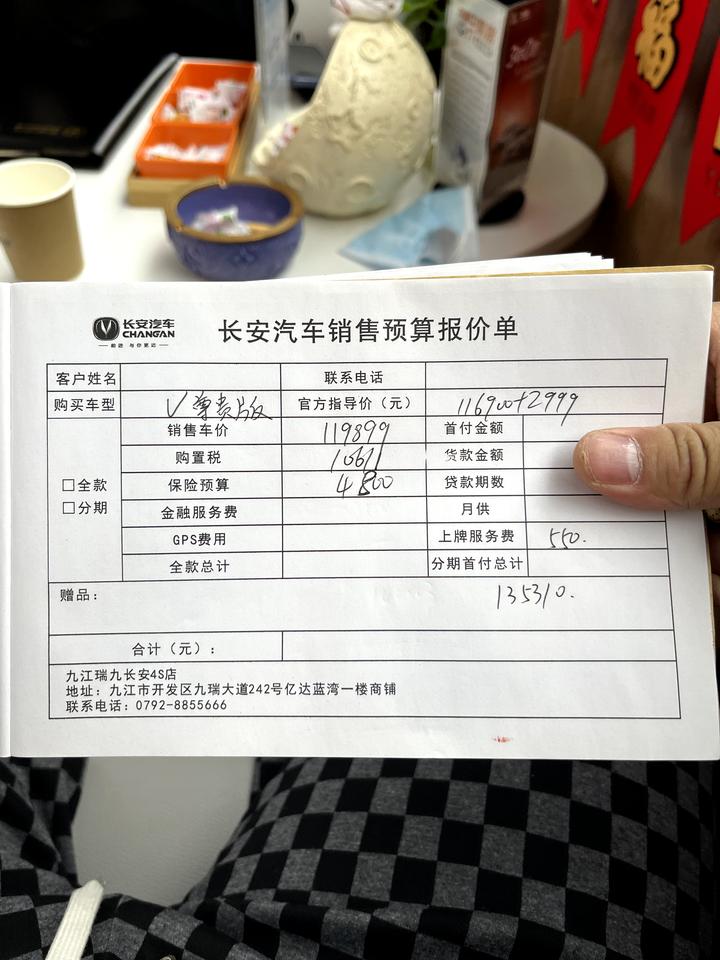 福
长安汽车
CHANGAN
长安汽车销售预算报价单
客户姓名 联系电话
购买车型 V尊贵版 官方指导价（元） 116900+2999
销售车价 119899 首付金额
购置税 10611 贷款金额
□全款 保险预算 4800 贷款期数
□分期 金融服务费 月供
GPS费用 上牌服务费 550.
全款总计 分期首付总计
赠品： 135310.
合计（元）：
九江瑞九长安4S店
地址：九江市开发区九瑞大道242号亿达蓝湾一楼商铺
联系电话：0792-8855666